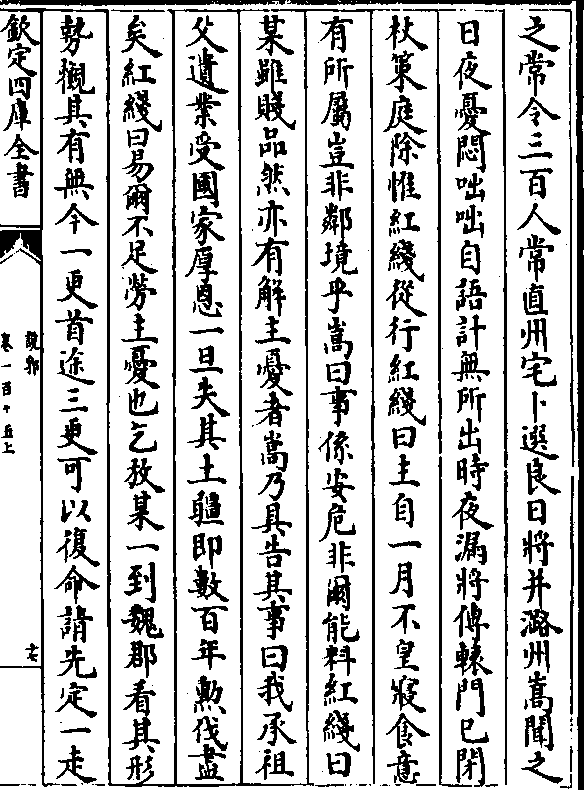 之常令三百人常直州宅卜選良日將并潞州嵩聞之
日夜憂悶咄咄自語計無所出時夜漏將傳轅門已閉
杖策庭除惟紅綫從行紅綫曰主自一月不皇寢食意
有所屬豈非鄰境乎嵩曰事係安危非爾能料紅綫曰
某雖賤品然亦有解主憂者嵩乃具告其事曰我承祖
父遺業受國家厚恩一旦失其土疆即數百年勲伐盡
矣紅綫曰易爾不足勞主憂也乞放某一到魏郡看其形
勢觀其有無今一更首途三更可以復命請先定一走
欽定四庫全書
說郛
卷一百十五上
十七